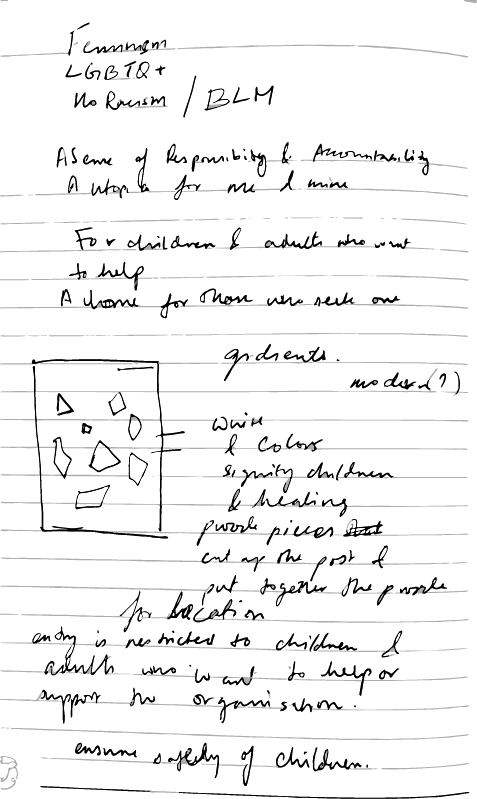 Feminism
LGBTQ+
No Racism / BLM
A Sense of Responsibility & Accountability
A Utopia for me & mine
For children & adults who want
to help
A home for those who seek one
gradients.
modern(?)
white
& colors
signify children
& healing
puzzle pieces
cut up the post &
put together the puzzle
for location
entry is restricted to children &
adults who want to help or
support the organisation.
ensure safety of children.